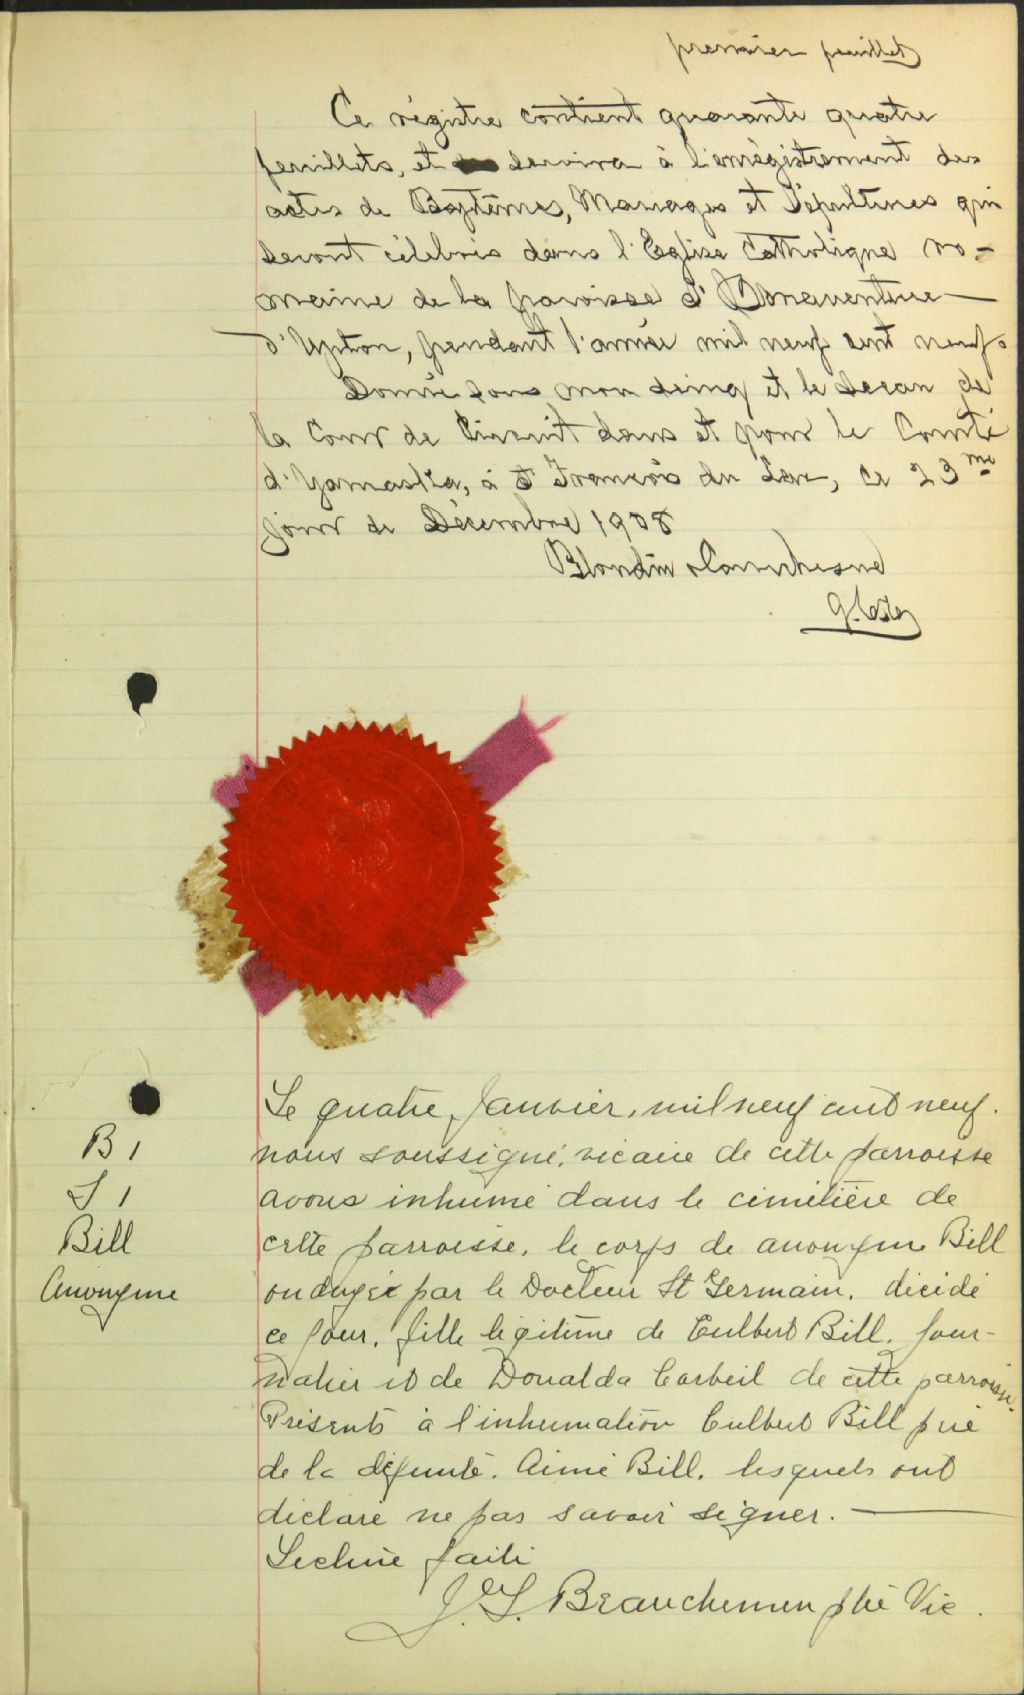 premier feuillet
Ce régistre contient quarante quatre
feuillets, et servira à l'enrégistrement des
actes de Baptêmes, Mariages et Sépultures qui
seront célébrés dans l'Eglise Catholique ro-
maine de la paroisse St Bonaventure
d'Upton, pendant l'année mil neuf cent neuf.
Donné sous mon seing et le Sceau de
la Cour de Circuit dans et pour le Comté
d'Yamaska, à St François du Lac, ce 23me
jour de Décembre 1908
Blondin
B 1
S 1
Bill
Anonyme
Le quatre, Janvier, mil neuf cent neuf.
nous soussigné, vicaire de cette parroisse
avons inhumé dans le cimetière de
cette parroisse, le corps de anonyme Bill
ondoyée par le Docteur St Germain, décédé
ce jour, fille légitime de Culbert Bill, jour-
nalier et de Donalda Corbeil de cette parroisse.
Présents à l'inhumation Culbert Bill père
de la défunte, Aimé Bill, lesquels ont
déclaré ne pas savoir signer.
Lecture faite
J. L. Beauchemin ptre Vic.